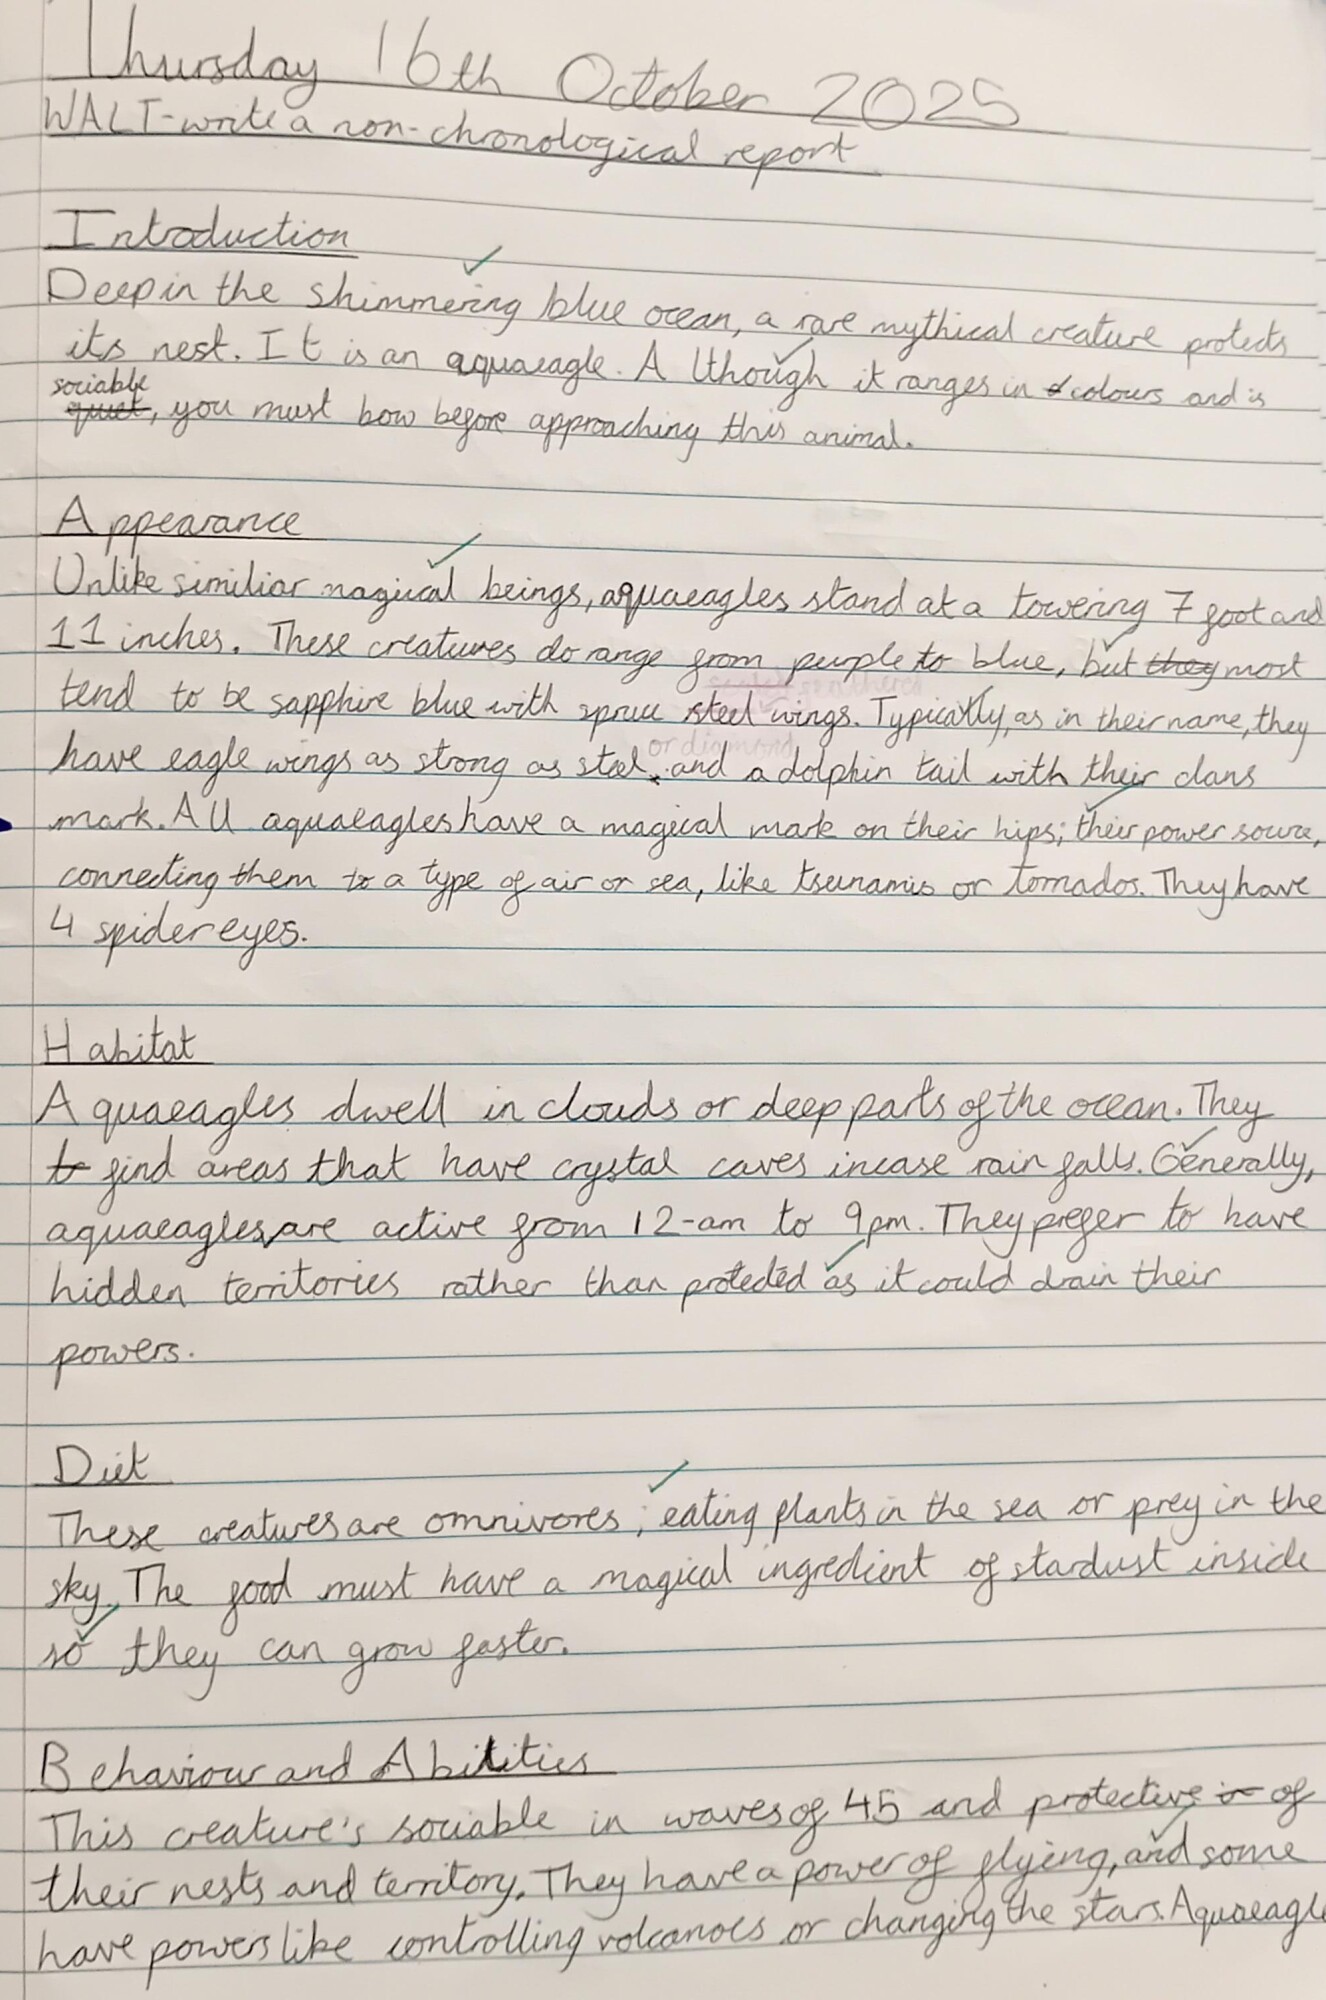 Thursday 16th October 2025
WALT-write a non-chronological report
Introduction
Deep in the shimmering blue ocean, a rare mythical creature protects
its nest. It is an aquaeagle. Although it ranges in colours and is
sociable
quiet, you must bow before approaching this animal.
Appearance
Unlike similiar magical beings, aquaeagles stand at a towering 7 foot and
11 inches. These creatures do range from purple to blue, but they most
tend to be sapphire blue with spruce steel wings. Typically, as in their name, they
or diamond
have eagle wings as strong as steel, and a dolphin tail with their clans
mark. All aquaeagles have a magical mark on their hips; their power source,
connecting them to a type of air or sea, like tsunamis or tornados. They have
4 spider eyes.
Habitat
Aquaeagles dwell in clouds or deep parts of the ocean. They
to find areas that have crystal caves incase rain falls. Generally,
aquaeagles are active from 12-am to 9pm. They prefer to have
hidden territories rather than protected as it could drain their
powers.
Diet
These creatures are omnivores; eating plants in the sea or prey in the
sky. The food must have a magical ingredient of stardust inside
so they can grow faster.
Behaviour and Abilities
This creature's sociable in waves of 45 and protective of
their nests and territory. They have a power of flying, and some
have powers like controlling volcanoes or changing the stars. Aquaeagle